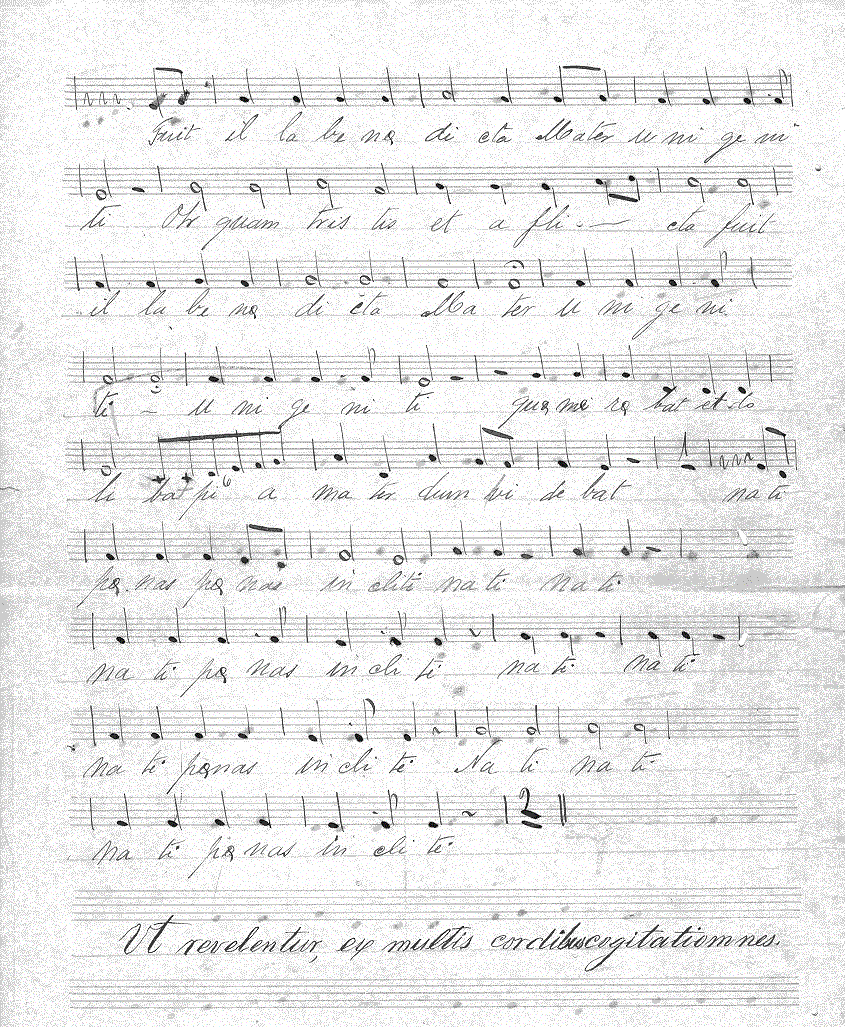 Fuit il la be nę di cta Mater u ni ge ni
ti Oh quam tris tis et a fli - cta fuit
il la be nę di cta Ma ter u ni ge ni
ti - u ni ge ni ti quę mę rę bat et do
le bat pi a ma ter dum vi de bat na ti
pę nas pę nas in cliti na ti na ti
na ti pę nas in cli ti na ti na ti
na ti pęnas in cli ti Na ti na ti
na ti pę nas in cli ti
Ut revelentur, ex multis cordibus cogitatiomnes.